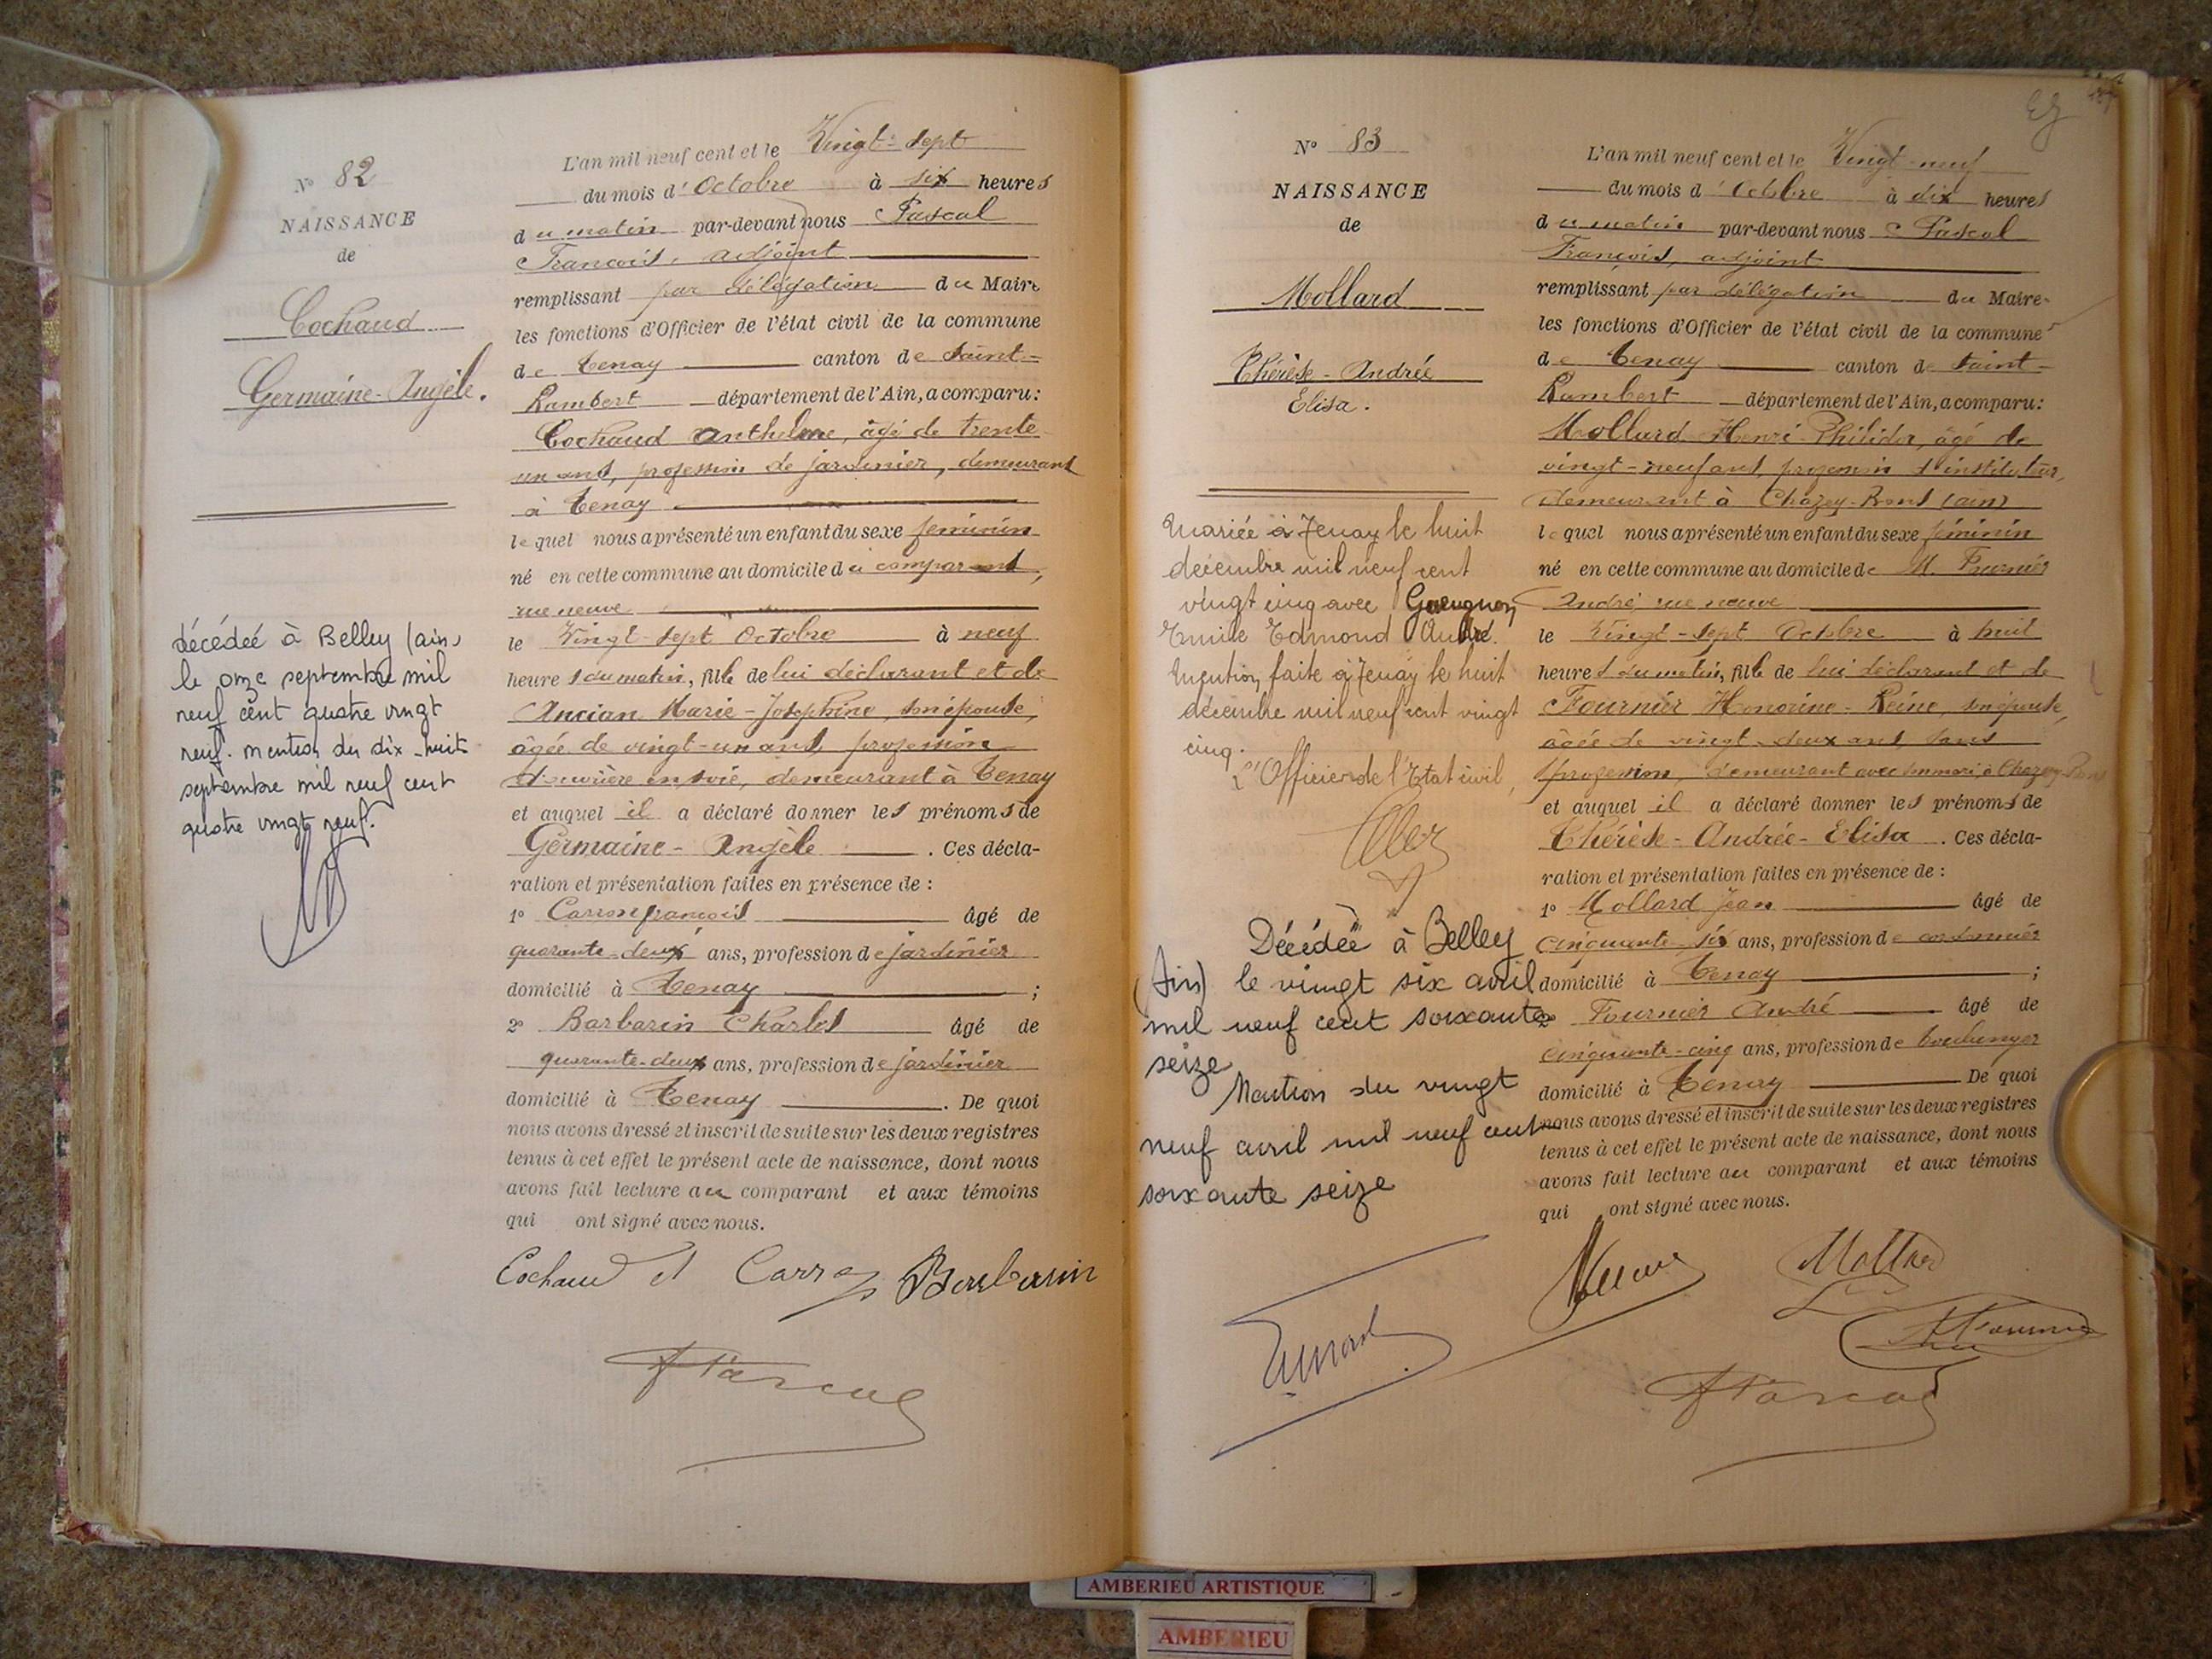 N° 82
NAISSANCE
de
Cochaud
Germaine-Angèle.
décédée à Belley (ain)
le onze septembre mil
neuf cent quatre vingt
neuf. mention du dix-huit
septembre mil neuf cent
quatre vingt neuf.
L'an mil neuf cent et le Vingt-sept
du mois d'Octobre à six heures
du matin par-devant nous Pascal
François, adjoint
remplissant par délégation du Maire
les fonctions d'Officier de l'état civil de la commune
de Tenay canton de Saint-
Rambert département de l'Ain, a comparu:
Cochaud Anthelme, âgé de trente
un ans, profession de jardinier, demeurant
à Tenay
lequel nous a présenté un enfant du sexe féminin
né en cette commune au domicile du comparant,
rue neuve
le Vingt-sept Octobre à neuf
heures du matin, fille de lui déclarant et de
Ancian Marie-Joséphine, son épouse,
âgée de vingt-un ans, profession
d'ouvrière en soie, demeurant à Tenay
et auquel il a déclaré donner les prénoms de
Germaine-Angèle. Ces décla-
ration et présentation faites en présence de :
1° Carron françois âgé de
quarante-deux ans, profession de jardinier
domicilié à Tenay ;
2° Barbarin Charles âgé de
quarante-deux ans, profession de jardinier
domicilié à Tenay. De quoi
nous avons dressé et inscrit de suite sur les deux registres
tenus à cet effet le présent acte de naissance, dont nous
avons fait lecture au comparant et aux témoins
qui ont signé avec nous.
Cochaud Barbarin
Pascal
N° 83
NAISSANCE
de
Mollard
Thérèse-Andrée
Elisa.
Mariée à Tenay le huit
décembre mil neuf cent
vingt cinq avec
Emile Edmond André.
Mention faite à Tenay le huit
décembre mil neuf cent vingt
cinq.
L'Officier de l'Etat civil,
Décédée à Belley
(Ain) le vingt six avril
mil neuf cent soixante
seize
Mention du vingt
neuf avril mil neuf cent
soixante seize
L'an mil neuf cent et le Vingt-neuf
du mois d'Octobre à dix heures
du matin par-devant nous Pascal
François, adjoint
remplissant par délégation du Maire
les fonctions d'Officier de l'état civil de la commune
de Tenay canton de Saint-
Rambert département de l'Ain, a comparu:
Mollard Henri-Philidor, âgé de
vingt-neuf ans, profession d'instituteur,
demeurant à Chazey-Bons (ain)
lequel nous a présenté un enfant du sexe féminin
né en cette commune au domicile de M. Fournier
André rue neuve
le Vingt-sept Octobre à huit
heures du matin, fille de lui déclarant et de
Fournier Honorine-Reine, son épouse,
âgée de vingt-deux ans, sans
profession, demeurant avec son mari à Chazey-Bons
et auquel il a déclaré donner les prénoms de
Thérèse-Andrée-Elisa. Ces décla-
ration et présentation faites en présence de :
1° Mollard Jean âgé de
cinquante-six ans, profession de cordonnier
domicilié à Tenay ;
2° Fournier André âgé de
cinquante-cinq ans, profession de boulanger
domicilié à Tenay De quoi
nous avons dressé et inscrit de suite sur les deux registres
tenus à cet effet le présent acte de naissance, dont nous
avons fait lecture au comparant et aux témoins
qui ont signé avec nous.
Pascal
AMBERIEU ARTISTIQUE
AMBERIEU